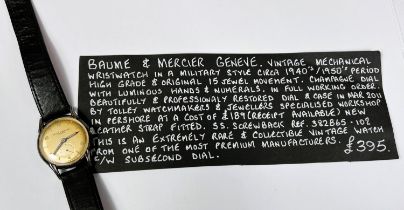 BAUME & MERCIER GENEVE. VINTAGE MECHANICAL
WRISTWATCH IN A MILITARY STYLE CIRCA 1940's/1950's PERIOD
HIGH GRADE & ORIGINAL 15 JEWEL MOVEMENT. CHAMPAGNE DIAL
WITH LUMINOUS HANDS & NUMERALS. IN FULL WORKING ORDER.
BEAUTIFULLY & PROFESSIONALY RESTORED DIAL & CASE IN MAR 2011
BY TOLLEY WATCHMAKERS & JEWELLERS SPECIALISED WORKSHOP
IN PERSHORE AT A COST OF £189 (RECEIPT AVAILABLE) NEW
LEATHER STRAP FITTED. S.S. SCREWBACK REF. 382865 · 102
THIS IS AN EXTREMELY RARE & COLLECTIBLE VINTAGE WATCH
FROM ONE OF THE MOST PREMIUM MANUFACTURERS.
C/W SUBSECOND DIAL.
£395.